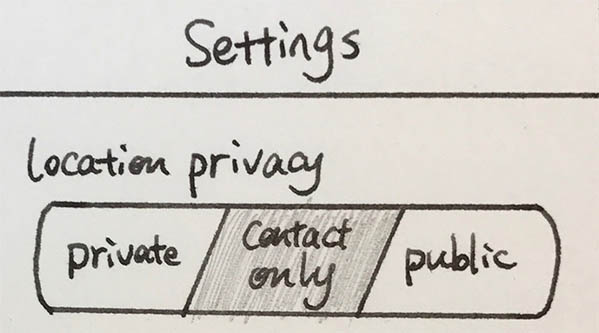 Settings
location privacy
private
Contact
only
public